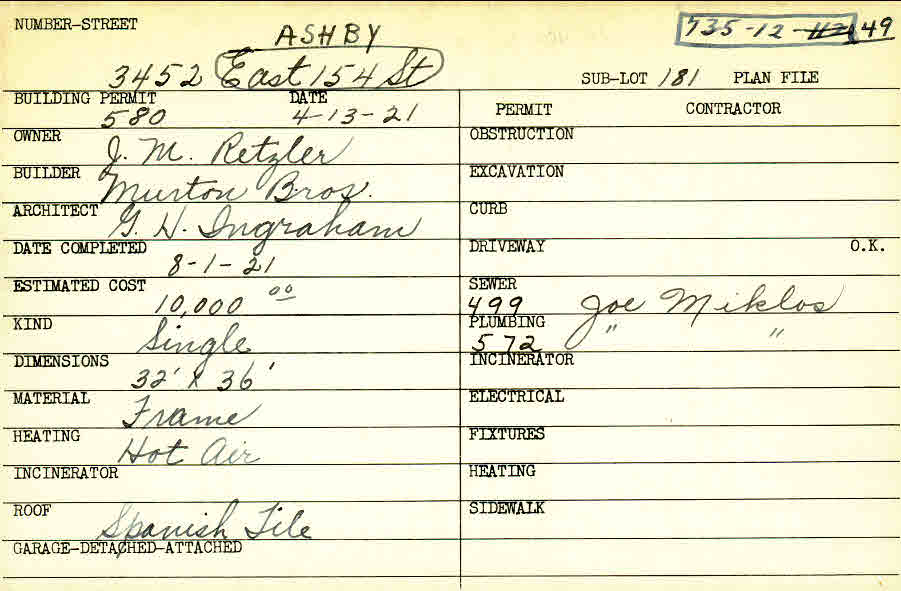 NUMBER-STREET
ASHBY
735-12-112 49
3452 East 154 St
SUB-LOT 181 PLAN FILE
BUILDING PERMIT DATE
580 4-13-21
PERMIT CONTRACTOR
OWNER J. M. Retzler
OBSTRUCTION
BUILDER Murton Bros.
EXCAVATION
ARCHITECT G. H. Ingraham
CURB
DATE COMPLETED
8-1-21
DRIVEWAY O.K.
ESTIMATED COST
10,000 00
SEWER
499 Joe Miklos
KIND
Single
PLUMBING
572 " "
DIMENSIONS
32' X 36'
INCINERATOR
MATERIAL
Frame
ELECTRICAL
HEATING
Hot Air
FIXTURES
INCINERATOR
HEATING
ROOF
Spanish Tile
SIDEWALK
GARAGE-DETACHED-ATTACHED